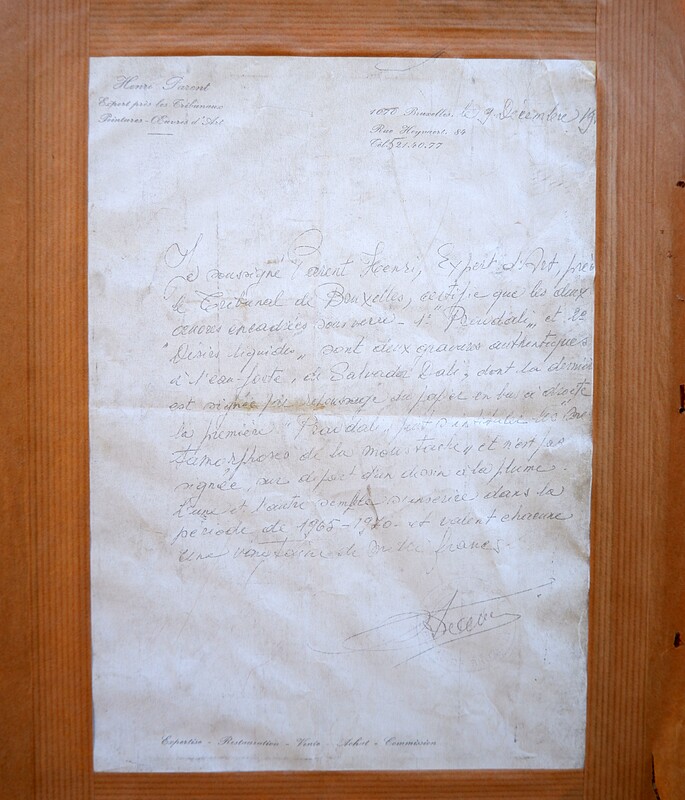 Henri Parent
Expert près les Tribunaux
Peintures - Œuvres d'Art
1070 Bruxelles, le 9 Décembre 19
Rue Heyvaert, 84
Tél. 521.40.77
Je soussigné Parent Henri, Expert d'Art, près
le Tribunal de Bruxelles, certifie que les deux
œuvres encadrées sous verre - 1° " et 2°
"Désirs liquides" sont deux gravures authentiques
à l'eau-forte, de Salvador Dali, dont la dernière
est signée par du papier en bas à droite
la première " peut s'intituler les "Mé-
tamorphoses de la moustache" et n'est pas
signée, sur départ d'un dessin à la plume.
L'une et l'autre semble s'inscrire dans la
période de 1965-1970 - et valent chacune
une vingtaine de mille francs.
Expertise - Restauration - Vente - Achat - Commission